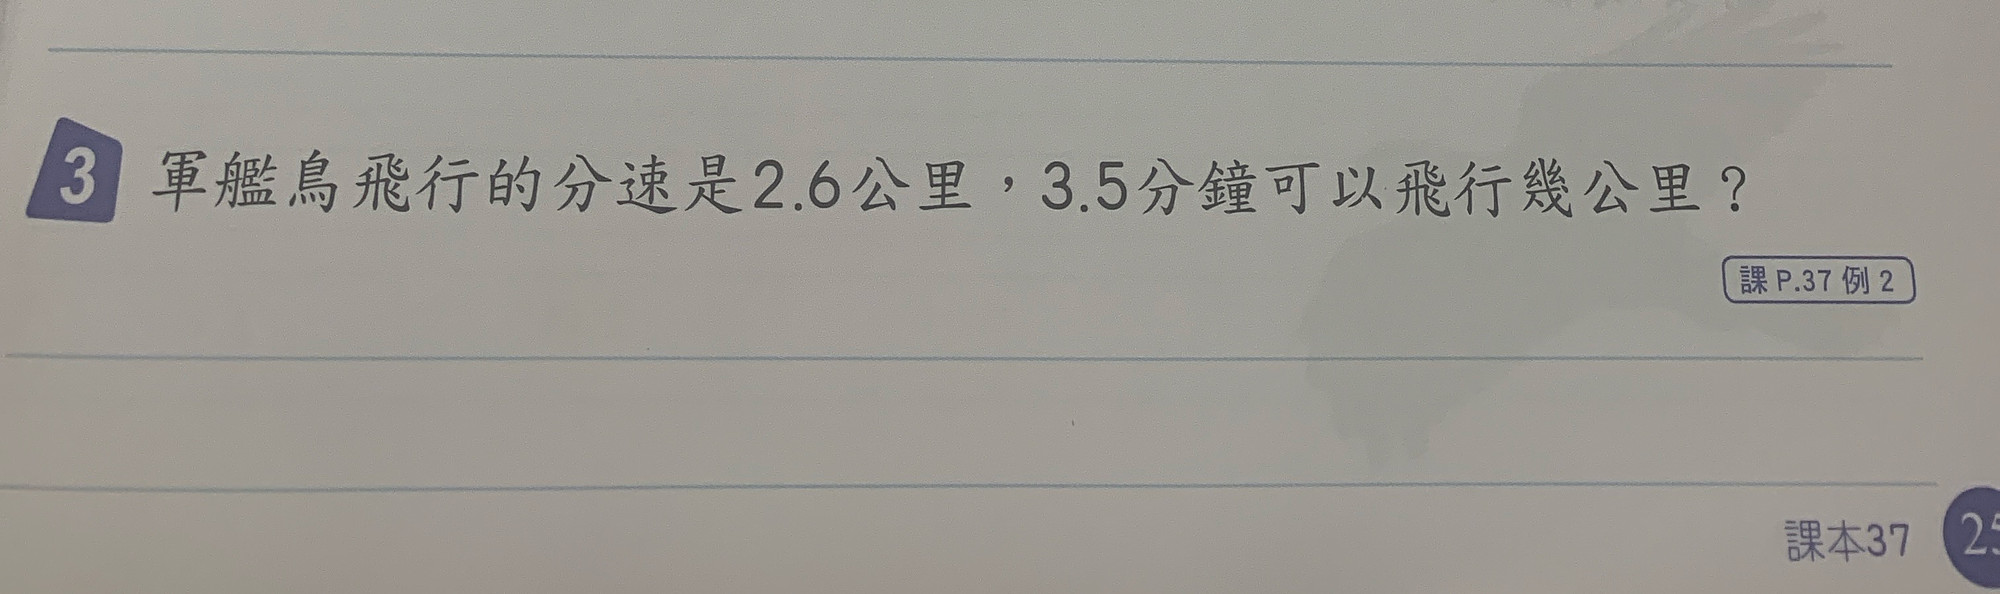 3 軍艦鳥飛行的分速是2.6公里，3.5分鐘可以飛行幾公里？
課 P.37 例 2
課本37 25